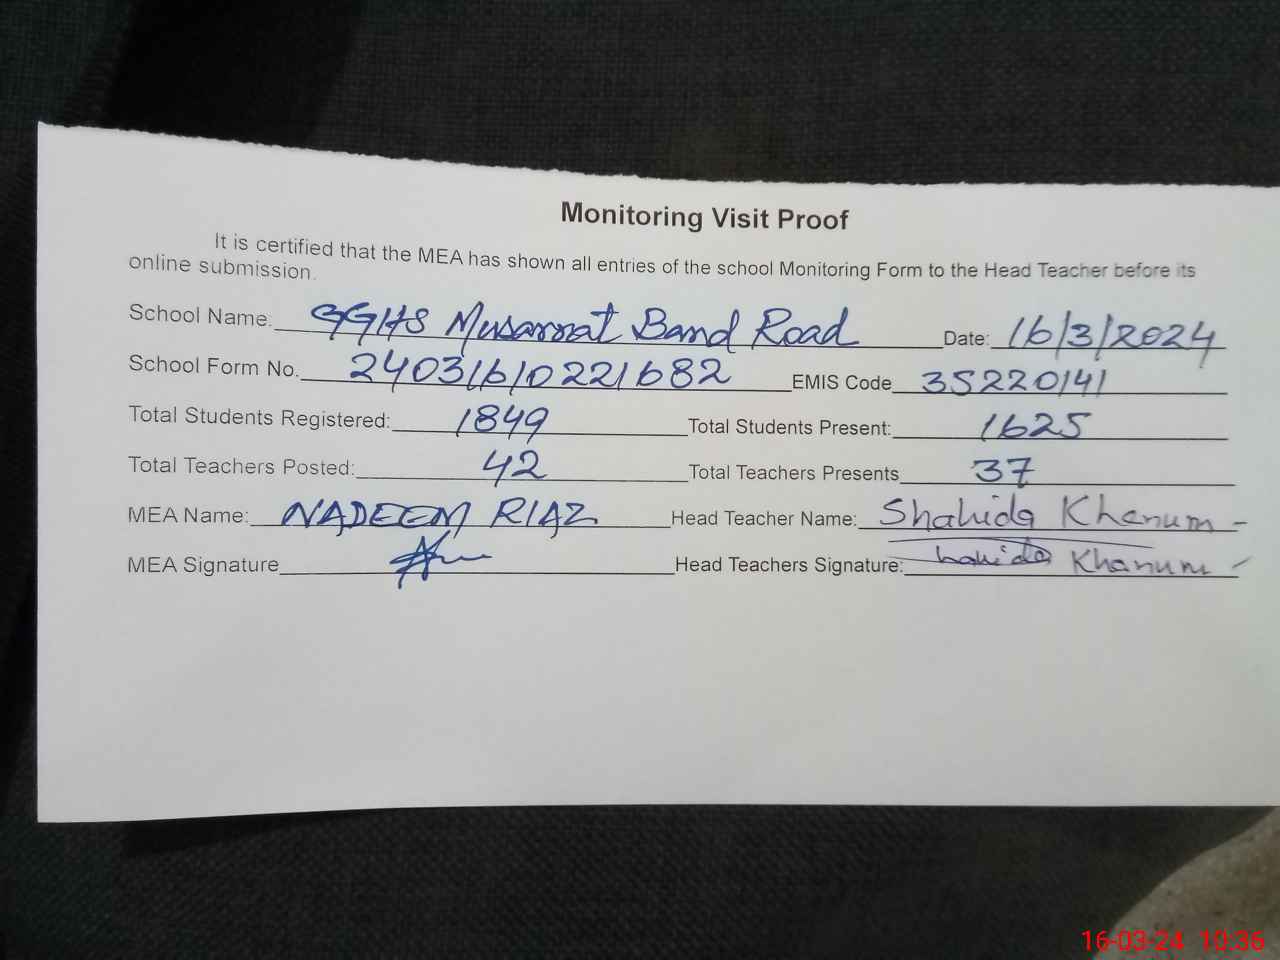 Monitoring Visit Proof
It is certified that the MEA has shown all entries of the school Monitoring Form to the Head Teacher before its
online submission.
School Name: GGHS Musarrat Band Road Date: 16/3/2024
School Form No. 24031610221682 EMIS Code 35220141
Total Students Registered: 1849 Total Students Present: 1625
Total Teachers Posted: 42 Total Teachers Presents 37
MEA Name: NADEEM RIAZ Head Teacher Name: Shahida Khanum -
MEA Signature Head Teachers Signature: Shahida Khanum -
16-03-24 10:36